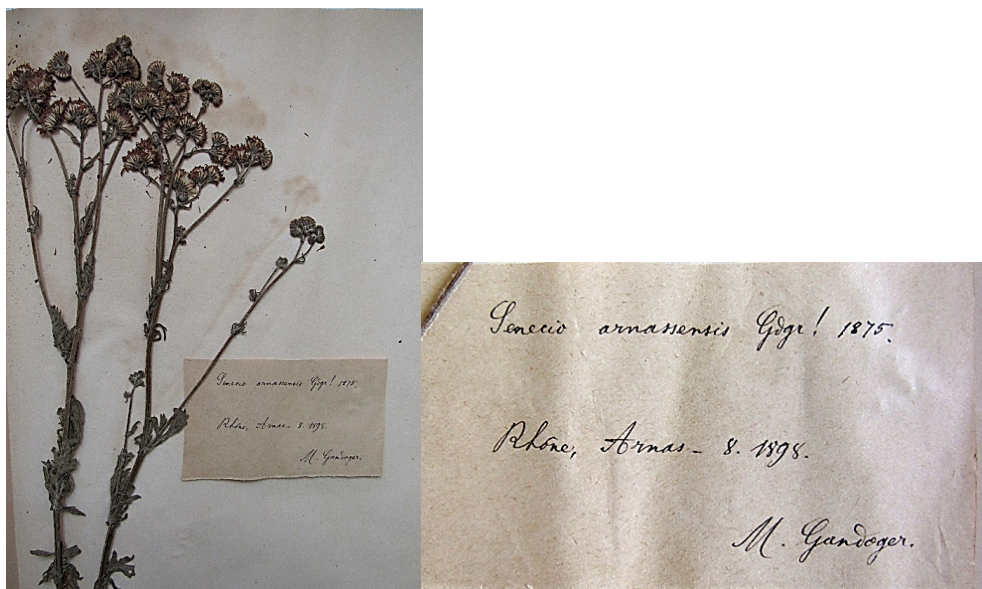 Senecio arnassensis Gdgr! 1875.
Rhône, Arnas - 8. 1898.
M. Gandoger.
Senecio arnassensis Gdgr! 1875.
Rhône, Arnas - 8. 1898.
M. Gandoger.